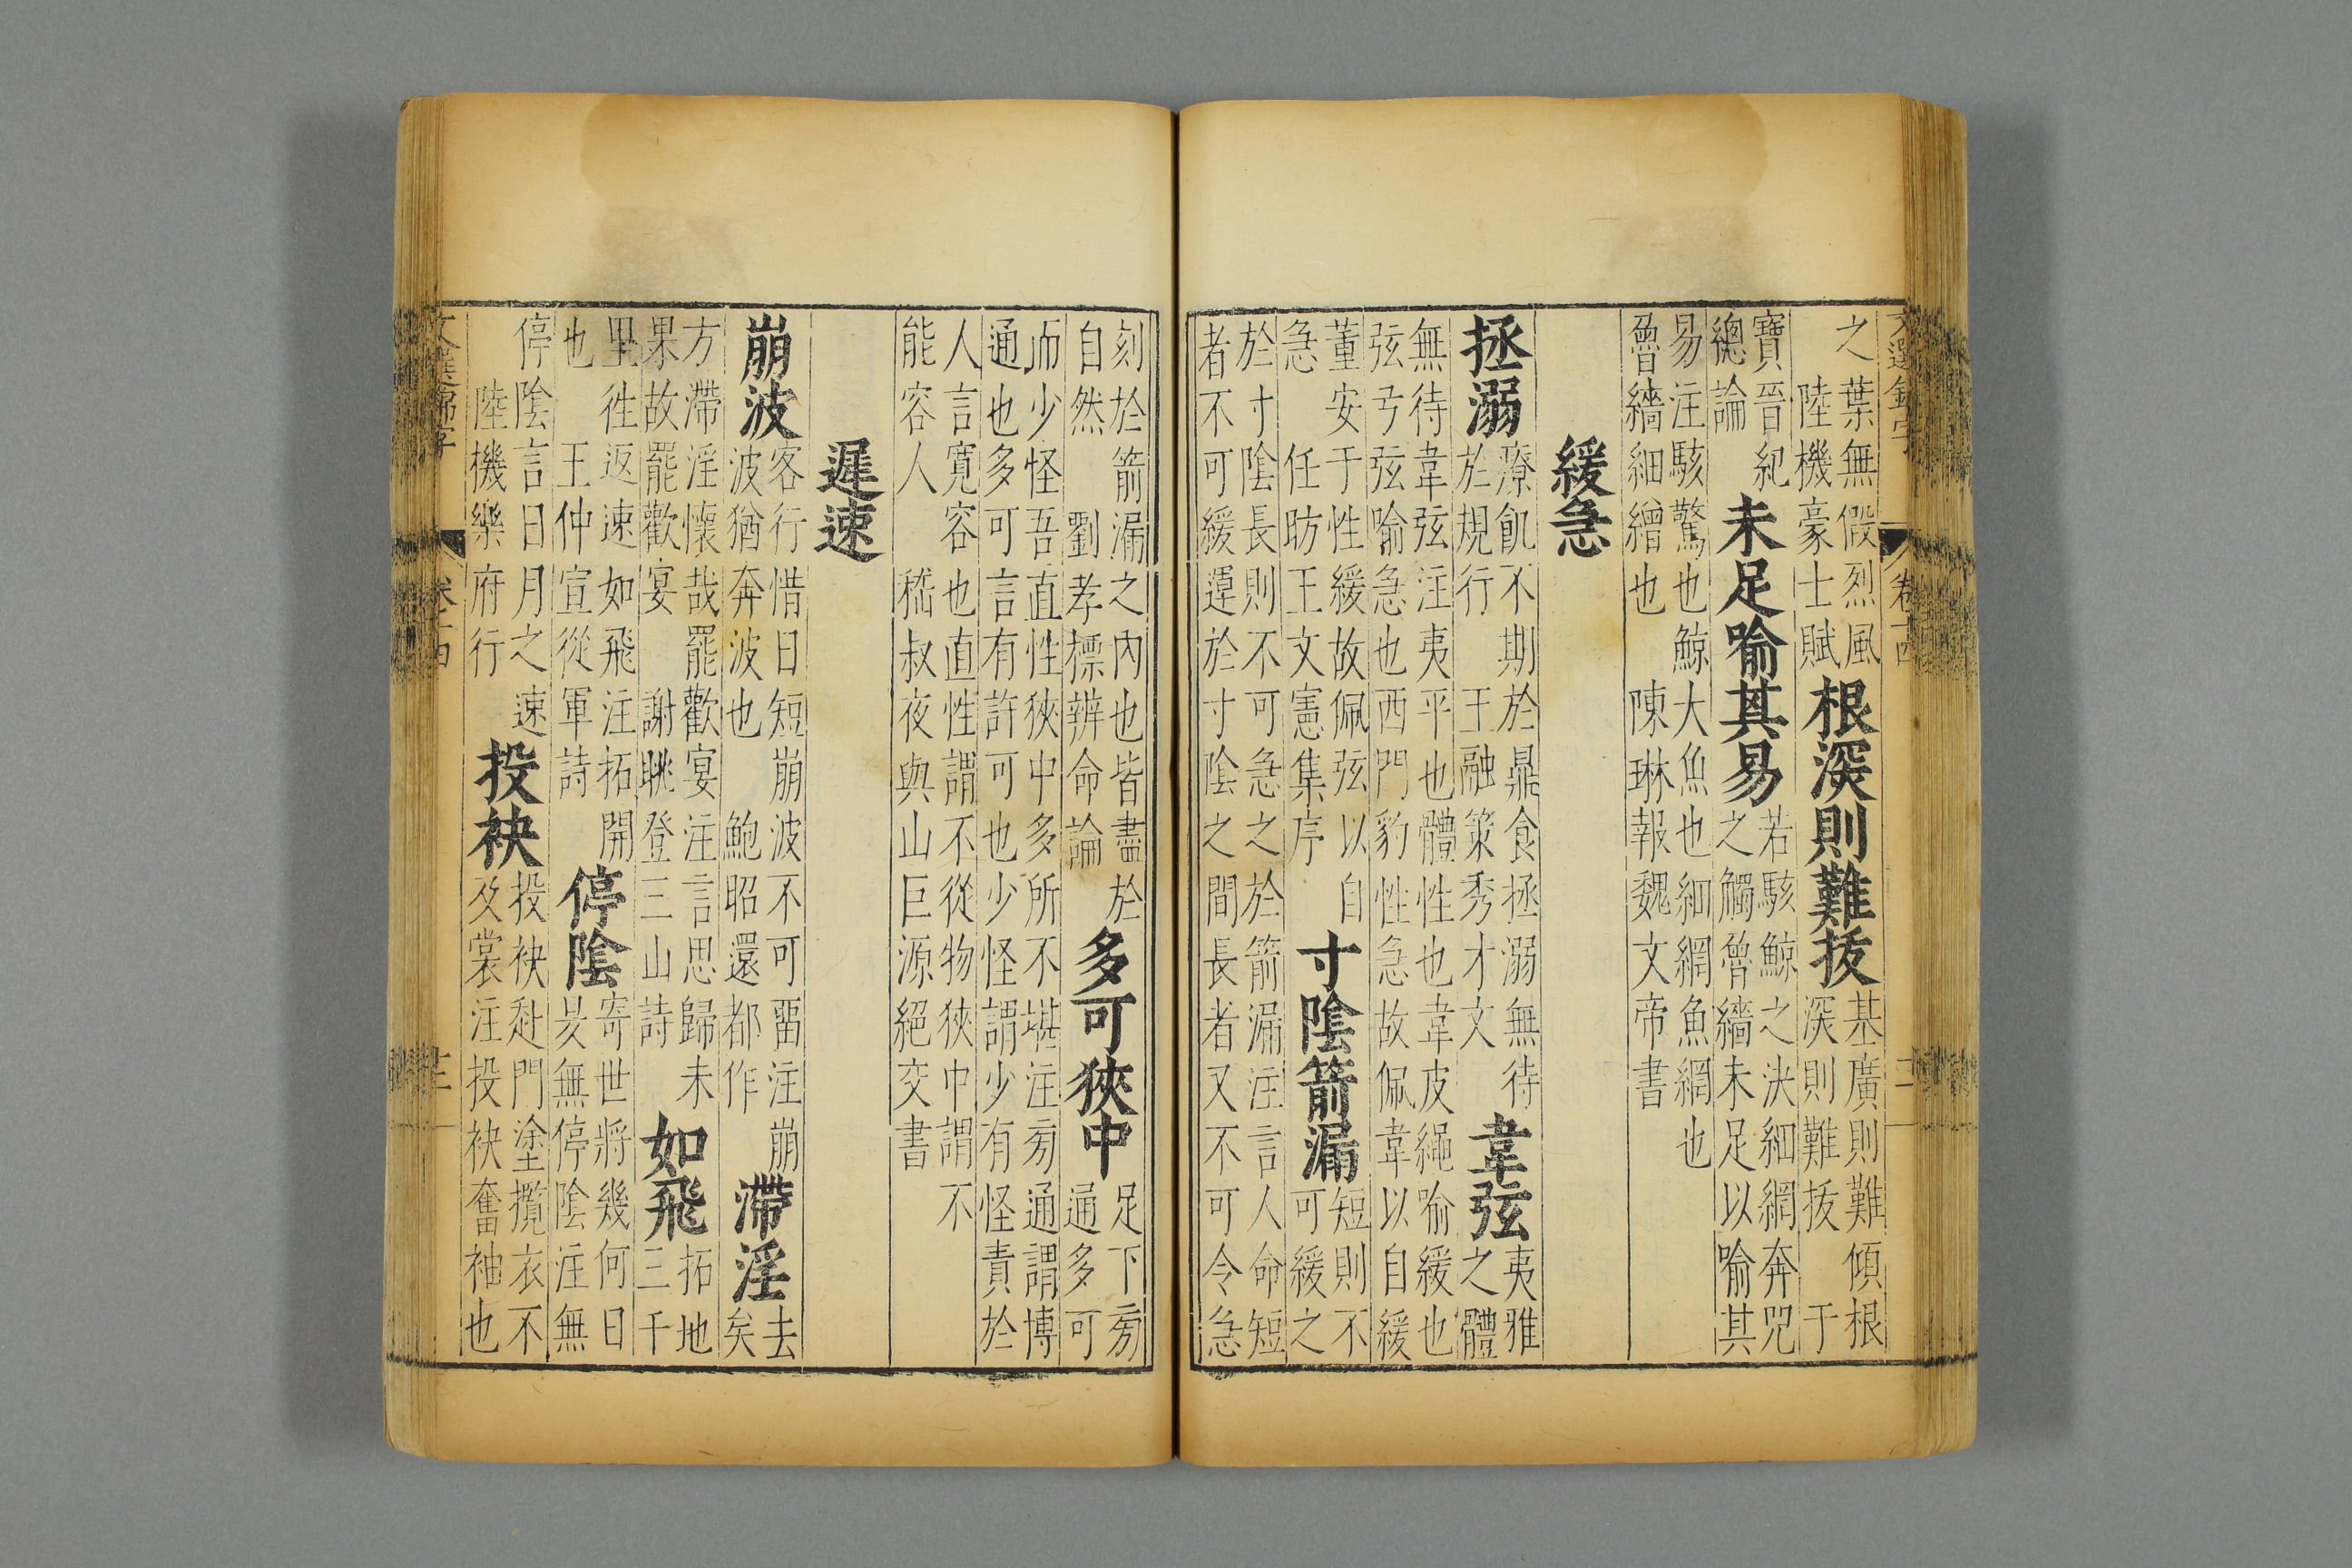 之葉無假烈風
陸機豪士賦
根深則難拔
基廣則難傾根
深則難拔 于
寶晉紀
總論
未足喻其易
若駭鯨之決細網奔兕
之觸魯縞未足以喻其
易注駭驚也鯨大魚也細網魚網也
魯縞細繒也 陳琳報魏文帝書
緩急
拯溺
療飢不期於鼎食拯溺無待
於規行 王融策秀才文
韋弦
夷雅
之體
無待韋弦注夷平也體性也韋皮繩喻緩也
弦弓弦喻急也西門豹性急故佩韋以自緩
董安于性緩故佩弦以自
急 任昉王文憲集序
寸陰箭漏
短則不
可緩之
於寸陰長則不可急之於箭漏注言人命短
者不可緩遲於寸陰之間長者又不可令急
刻於箭漏之內也皆盡於
自然 劉孝標辨命論
多可狹中
足下旁
通多可
而少怪吾直性狹中多所不堪注旁通謂博
通也多可言有許可也少怪謂少有怪責於
人言寬容也直性謂不從物狹中謂不
能容人 嵇叔夜與山巨源絕交書
遲速
崩波
客行惜日短崩波不可留注崩
波猶奔波也 鮑昭還都作
滯淫
去
矣
方滯淫懷哉罷歡宴注言思歸未
果故罷歡宴 謝眺登三山詩
如飛
拓地
三千
里徃返速如飛注拓開
也 王仲宣從軍詩
停陰
寄世將幾何日
昃無停陰注無
停陰言日月之速
陸機樂府行
投袂
投袂赴門塗攬衣不
及裳注投袂奮袖也